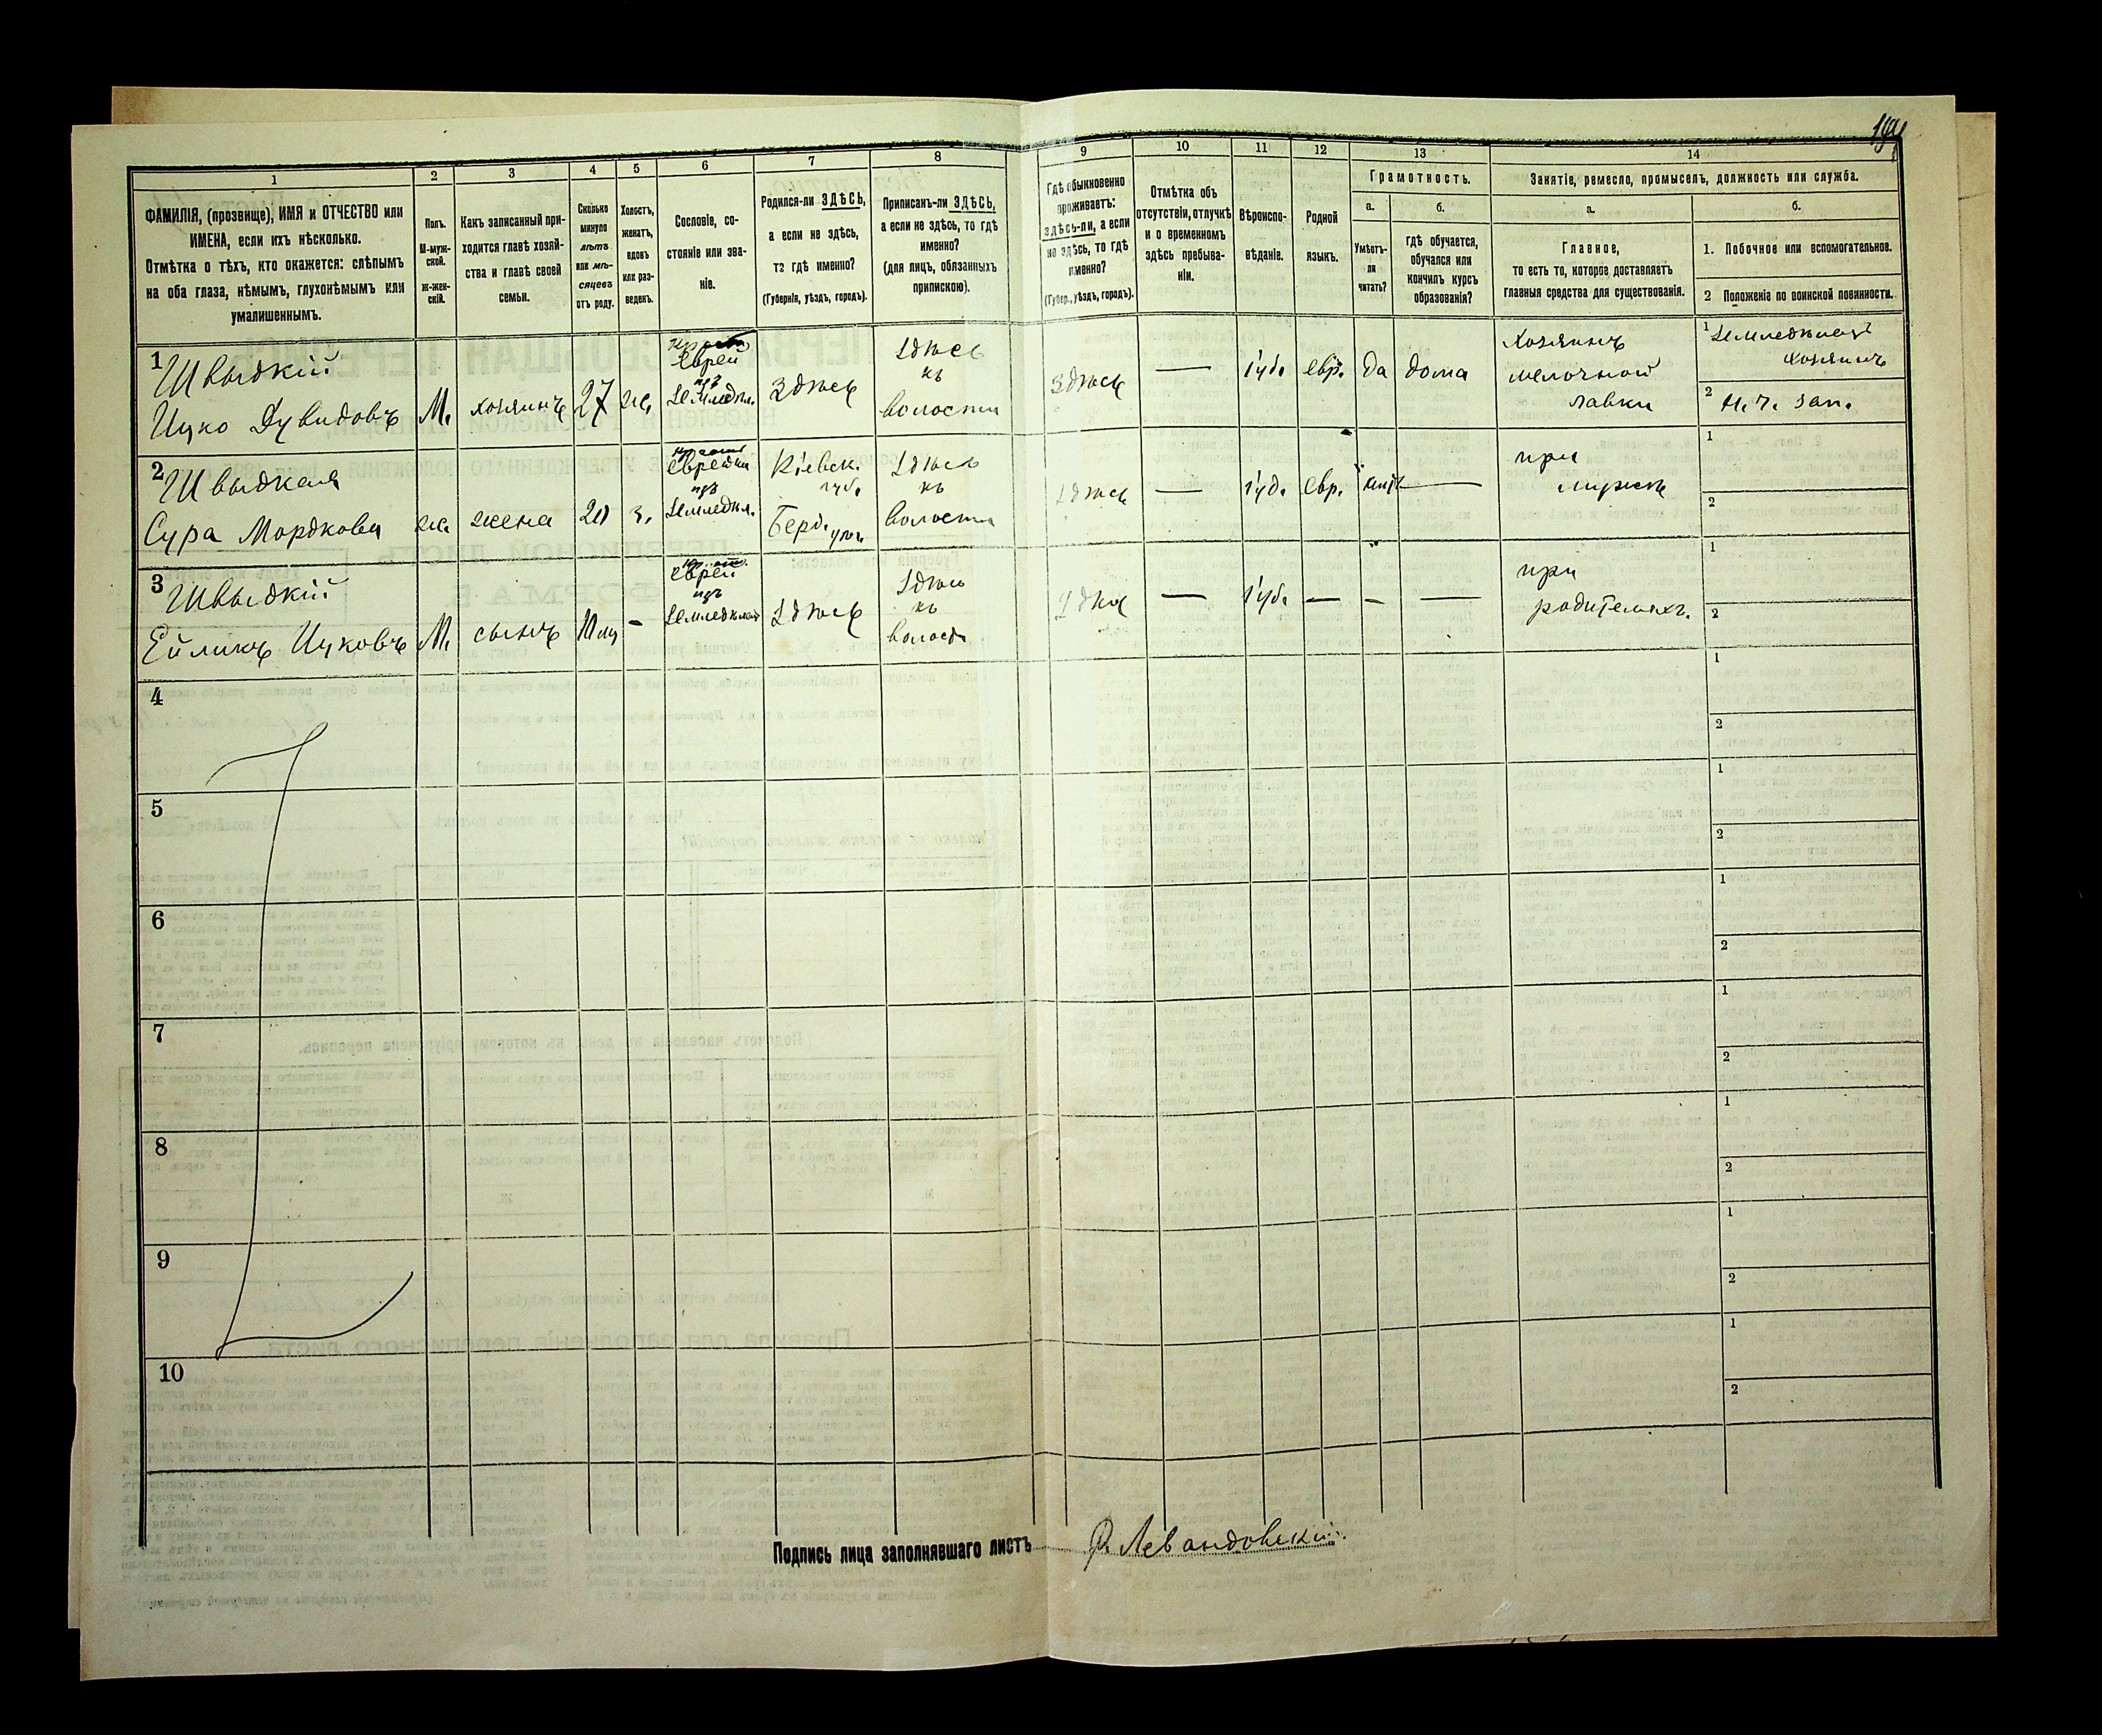 194
1
2
3
4
5
6
7
8
9
10
11
12
13
14
ФАМИЛІЯ, (прозвище), ИМЯ и ОТЧЕСТВО или
ИМЕНА, если ихъ нѣсколько.
Отмѣтка о тѣхъ, кто окажется: слѣпымъ
на оба глаза, нѣмымъ, глухонѣмымъ или
умалишеннымъ.
Полъ.
М-муж-
ской.
Ж-жен-
скій.
Какъ записанный при-
ходится главѣ хозяй-
ства и главѣ своей
семьи.
Сколько
минуло
лѣтъ
или мѣ-
сяцевъ
отъ роду.
Холостъ,
женатъ,
вдовъ
или раз-
веденъ.
Сословіе, со-
стояніе или зва-
ніе.
Родился-ли ЗДѢСЬ,
а если не здѣсь,
то гдѣ именно?
(Губернія, уѣздъ, городъ).
Приписанъ-ли ЗДѢСЬ,
а если не здѣсь, то гдѣ
именно?
(для лицъ, обязанныхъ
припискою).
Гдѣ обыкновенно
проживаетъ:
здѣсь-ли, а если
не здѣсь, то гдѣ
именно?
(Губер., уѣздъ, городъ).
Отмѣтка объ
отсутствіи, отлучкѣ
и о временномъ
здѣсь пребыва-
ніи.
Вѣроиспо-
вѣданіе.
Родной
языкъ.
Грамотность.
а.
Умѣетъ-
ли
читать?
б.
гдѣ обучается,
обучался или
кончилъ курсъ
образованія?
Занятіе, ремесло, промыселъ, должность или служба.
а.
Главное,
то есть то, которое доставляетъ
главныя средства для существованія.
б.
1. Побочное или вспомогательное.
2 Положеніе по воинской повинности.
1
Швыдкій
Ицко Дувидовъ
М.
хозяинъ
27
ж.
Еврей
изъ
Земледѣл.
Здѣсь
Здѣсь
къ
волости
Здѣсь
—
Іуд.
евр.
да
дома
Хозяинъ
мелочной
лавки
1
хозяинъ
2
н. ч. зап.
2
Швыдкая
Сура Мордкова
ж.
жена
20
з.
еврейка
изъ
Земледѣл.
Кіевск.
губ.
Берд. уѣз.
Здѣсь
къ
волости
Здѣсь
—
Іуд.
евр.
—
при
мужѣ
1
2
3
Швыдкій
Ейликъ Ицковъ
М.
сынъ
-
Еврей
изъ
Здѣсь
Здѣсь
къ
волости
—
Іуд.
—
—
—
при
родителяхъ.
1
2
4
1
2
5
1
2
6
1
2
7
1
2
8
1
2
9
1
2
10
1
2
Подпись лица заполнявшаго листъ
Ф. Левандовскій